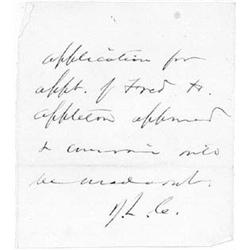 application for
appt. of Fred H.
Appleton approved
& commission will
be made out.